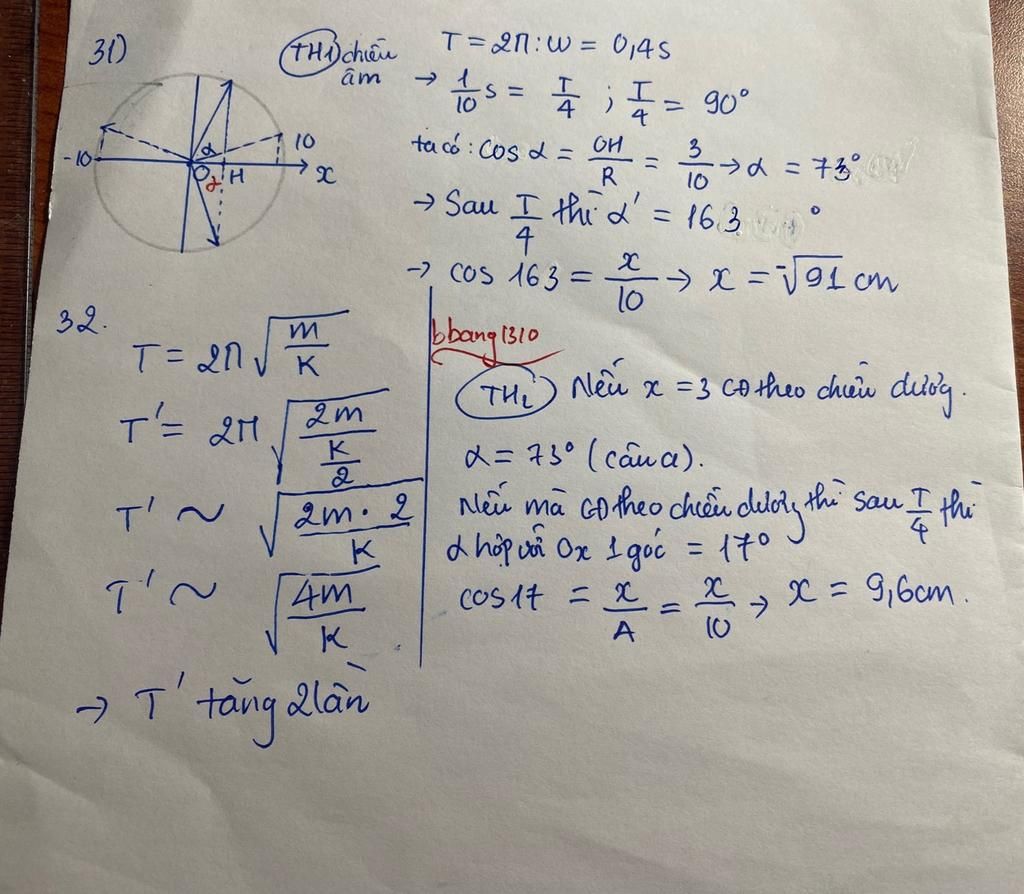 31)
TH1 chiều âm
T = 2π : ω = 0,4s
→ 1/10 s = T/4 ; T/4 = 90°
ta có : cos α = OH/R = 3/10 → α = 73°
→ Sau T/4 thì α' = 163°
→ cos 163 = x/10 → x = -√91 cm
-10 O α α H 10 x
32.
T = 2π √(m/K)
T' = 2π √(2m/(K/2))
T' ~ √(2m·2/K)
T' ~ √(4m/K)
→ T' tăng 2 lần
bbang1310
TH2 Nếu x = 3 CĐ theo chiều dương.
α = 73° (câu a).
Nếu mà CĐ theo chiều dương thì sau T/4 thì
α hợp với Ox 1 góc = 17°
cos17 = x/A = x/10 → x = 9,6cm.